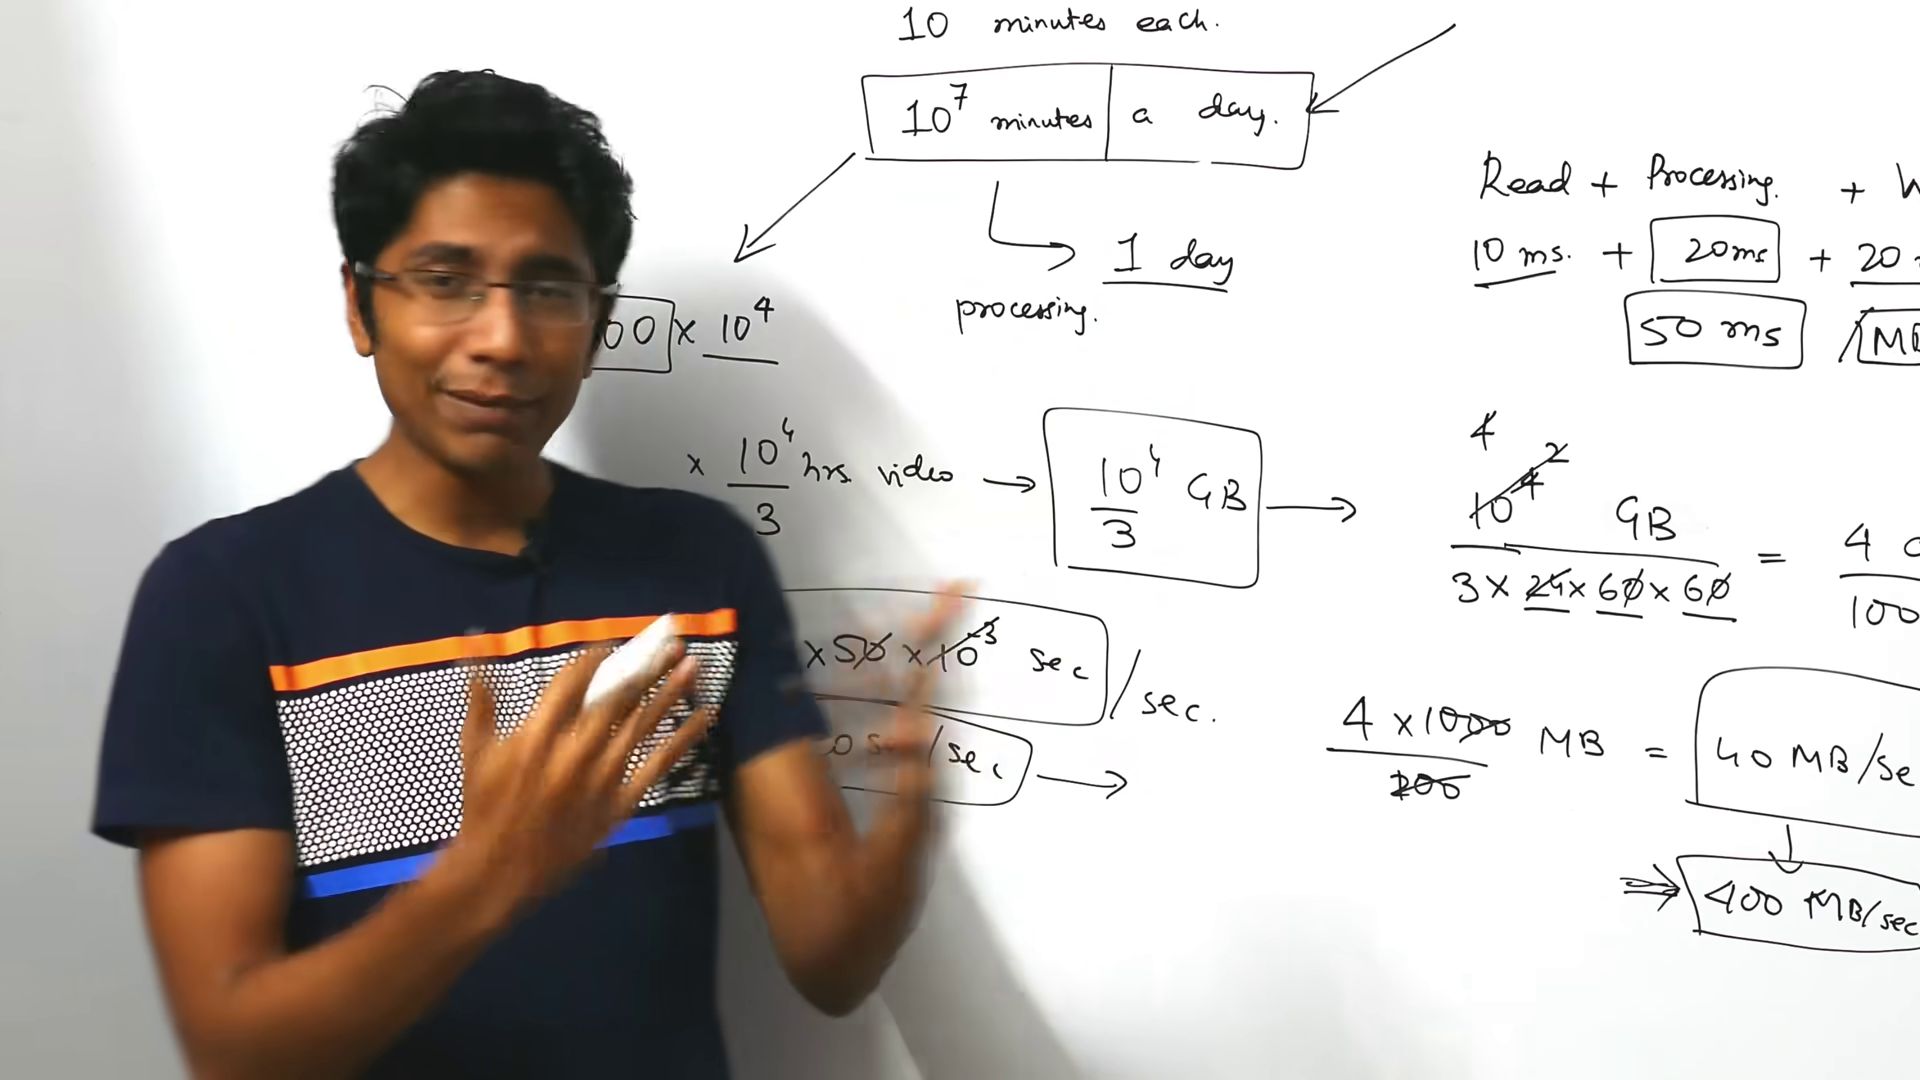 10 minutes each.
10⁷ minutes | a day.
1 day
processing.
00 x 10⁴
x 10⁴/3 hrs. video → 10⁴/3 GB →
x 50 x 10⁻³ sec / sec.
/sec →
Read + Processing. +
10 ms. + 20ms + 20
50 ms / MB
4
2
10⁴ GB / 3 x 24 x 60 x 60 = 4 / 100
4 x 1000 / 100 MB = 40 MB/se
⇒ 400 MB/sec